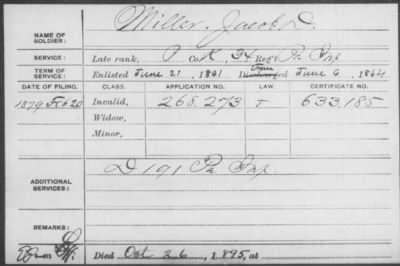 Miller, Jacob D.
NAME OF SOLDIER:
SERVICE: Late rank, P Co. K, 34 Reg't Pa Inf
TERM OF SERVICE: Enlisted June 21, 1861 Discharged June 6, 1864
DATE OF FILING. CLASS. APPLICATION NO. LAW. CERTIFICATE NO.
1879 Feb 20 Invalid, 268.273 T 633.185
Widow,
Minor,
ADDITIONAL SERVICES: D 191 Pa Inf.
REMARKS:
Died Oct 26, 1895, at